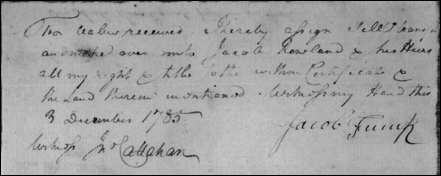 For value received I hereby assign Sell Trans
and make over unto Jacob Rowland & his Heirs
all my right & title to the within Certificate &
the Land therein mentioned Witness my Hand this
3 December 1785
Jacob Funk
Witness Jno Callahan